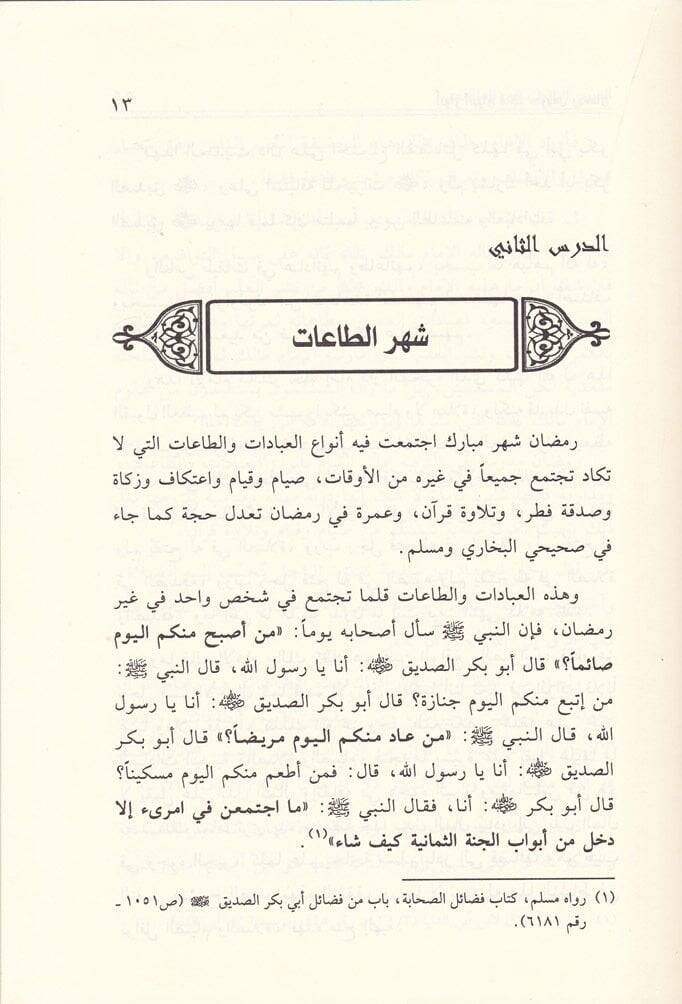 ١٣
الدرس الثاني
شهر الطاعات
رمضان شهر مبارك اجتمعت فيه أنواع العبادات والطاعات التي لا
تكاد تجتمع جميعاً في غيره من الأوقات، صيام وقيام واعتكاف وزكاة
وصدقة فطر، وتلاوة قرآن، وعمرة في رمضان تعدل حجة كما جاء
في صحيحي البخاري ومسلم.
وهذه العبادات والطاعات قلما تجتمع في شخص واحد في غير
رمضان، فإن النبي ﷺ سأل أصحابه يوماً: «من أصبح منكم اليوم
صائماً؟» قال أبو بكر الصديق رضي الله عنه: أنا يا رسول الله، قال النبي ﷺ:
من إتبع منكم اليوم جنازة؟ قال أبو بكر الصديق رضي الله عنه: أنا يا رسول
الله، قال النبي ﷺ: «من عاد منكم اليوم مريضاً؟» قال أبو بكر
الصديق رضي الله عنه: أنا يا رسول الله، قال: فمن أطعم منكم اليوم مسكيناً؟
قال أبو بكر رضي الله عنه: أنا، فقال النبي ﷺ: «ما اجتمعن في امرىء إلا
دخل من أبواب الجنة الثمانية كيف شاء»(١).
(١) رواه مسلم، كتاب فضائل الصحابة، باب من فضائل أبي بكر الصديق ﷺ (ص١٠٥١ ـ
رقم ٦١٨١).